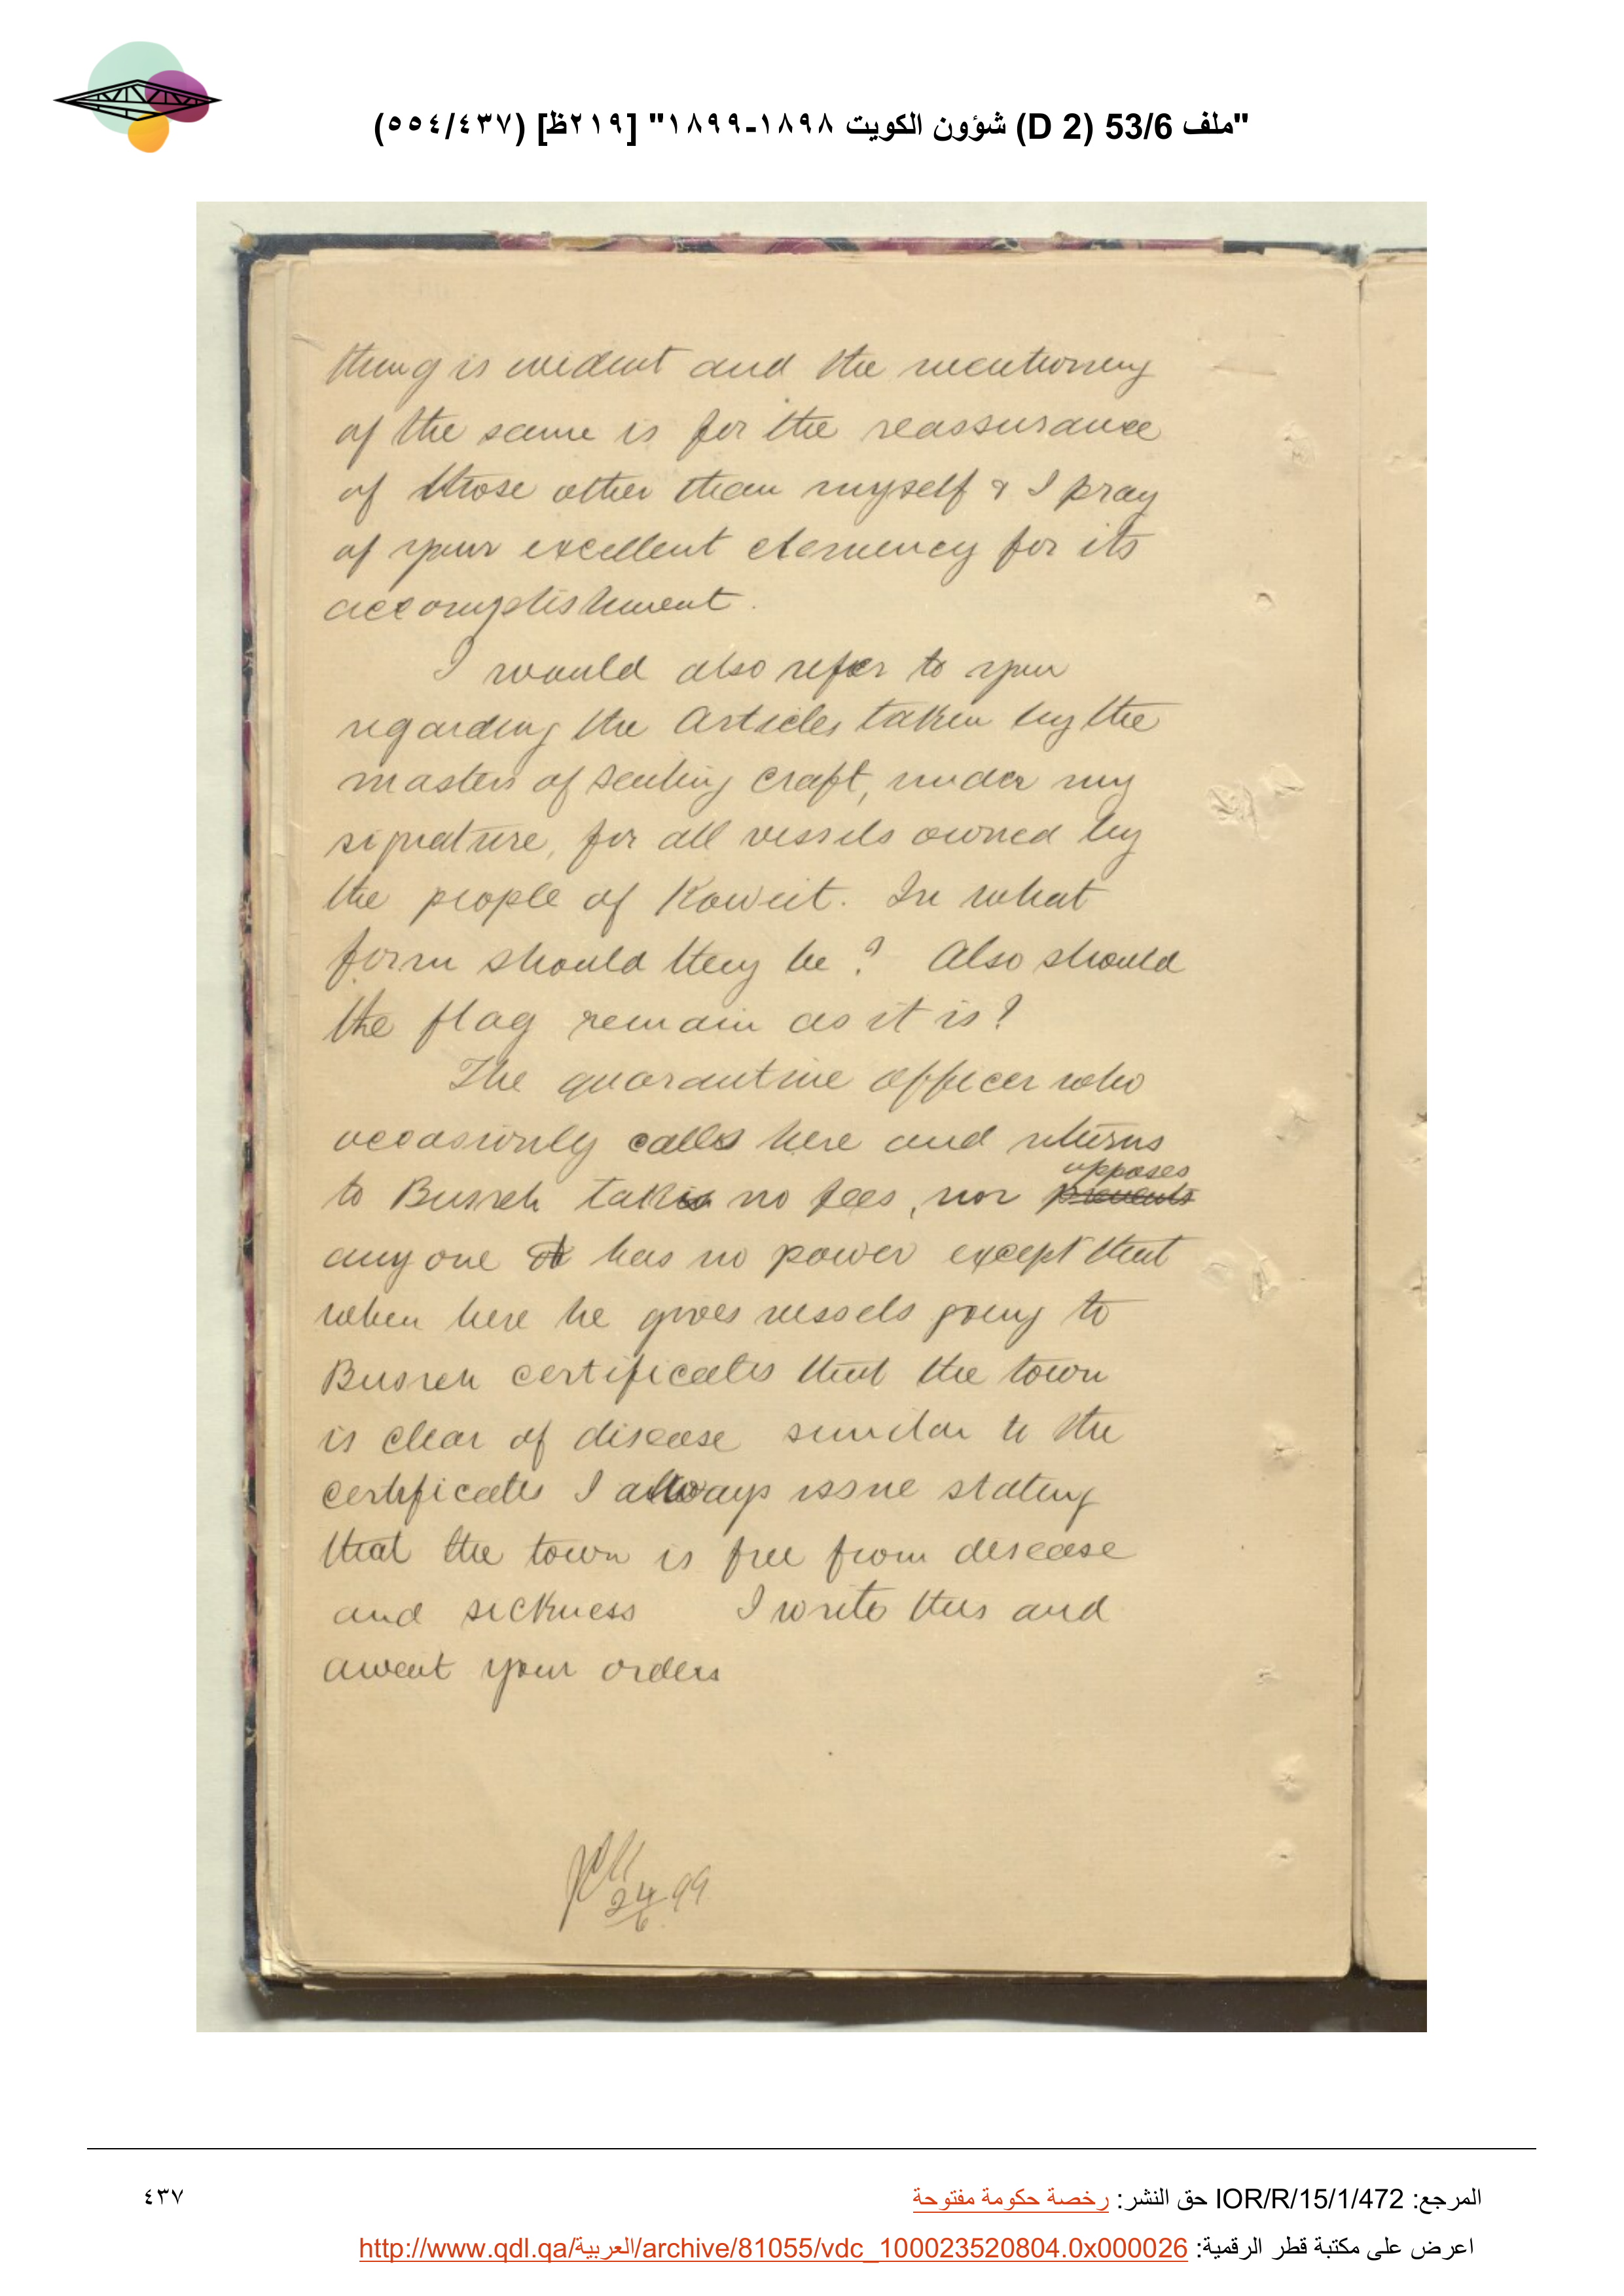 "ملف 53/6 (D 2) شؤون الكويت ١٨٩٨-١٨٩٩" [٢١٩ظ] (٥٥٤/٤٣٧)
thing is evident and the mentioning
of the same is for the reassurance
of those other than myself & I pray
of your excellent clemency for its
accomplishment.
I would also refer to you
regarding the Articles taken by the
masters of sailing craft, under my
signature, for all vessels owned by
the people of Koweit. In what
form should they be? Also should
the flag remain as it is?
The quarantine officer who
occasionly calls here and returns
opposes
to Busreh takes no fees, nor prevents
any one has no power except that
when here he gives vessels going to
Busreh certificates that the town
is clear of disease similar to the
certificates I always issue stating
that the town is free from disease
and sickness I write this and
await your orders
24/6 99
المرجع: IOR/R/15/1/472 حق النشر: رخصة حكومة مفتوحة
٤٣٧
اعرض على مكتبة قطر الرقمية: http://www.qdl.qa/العربية/archive/81055/vdc_100023520804.0x000026